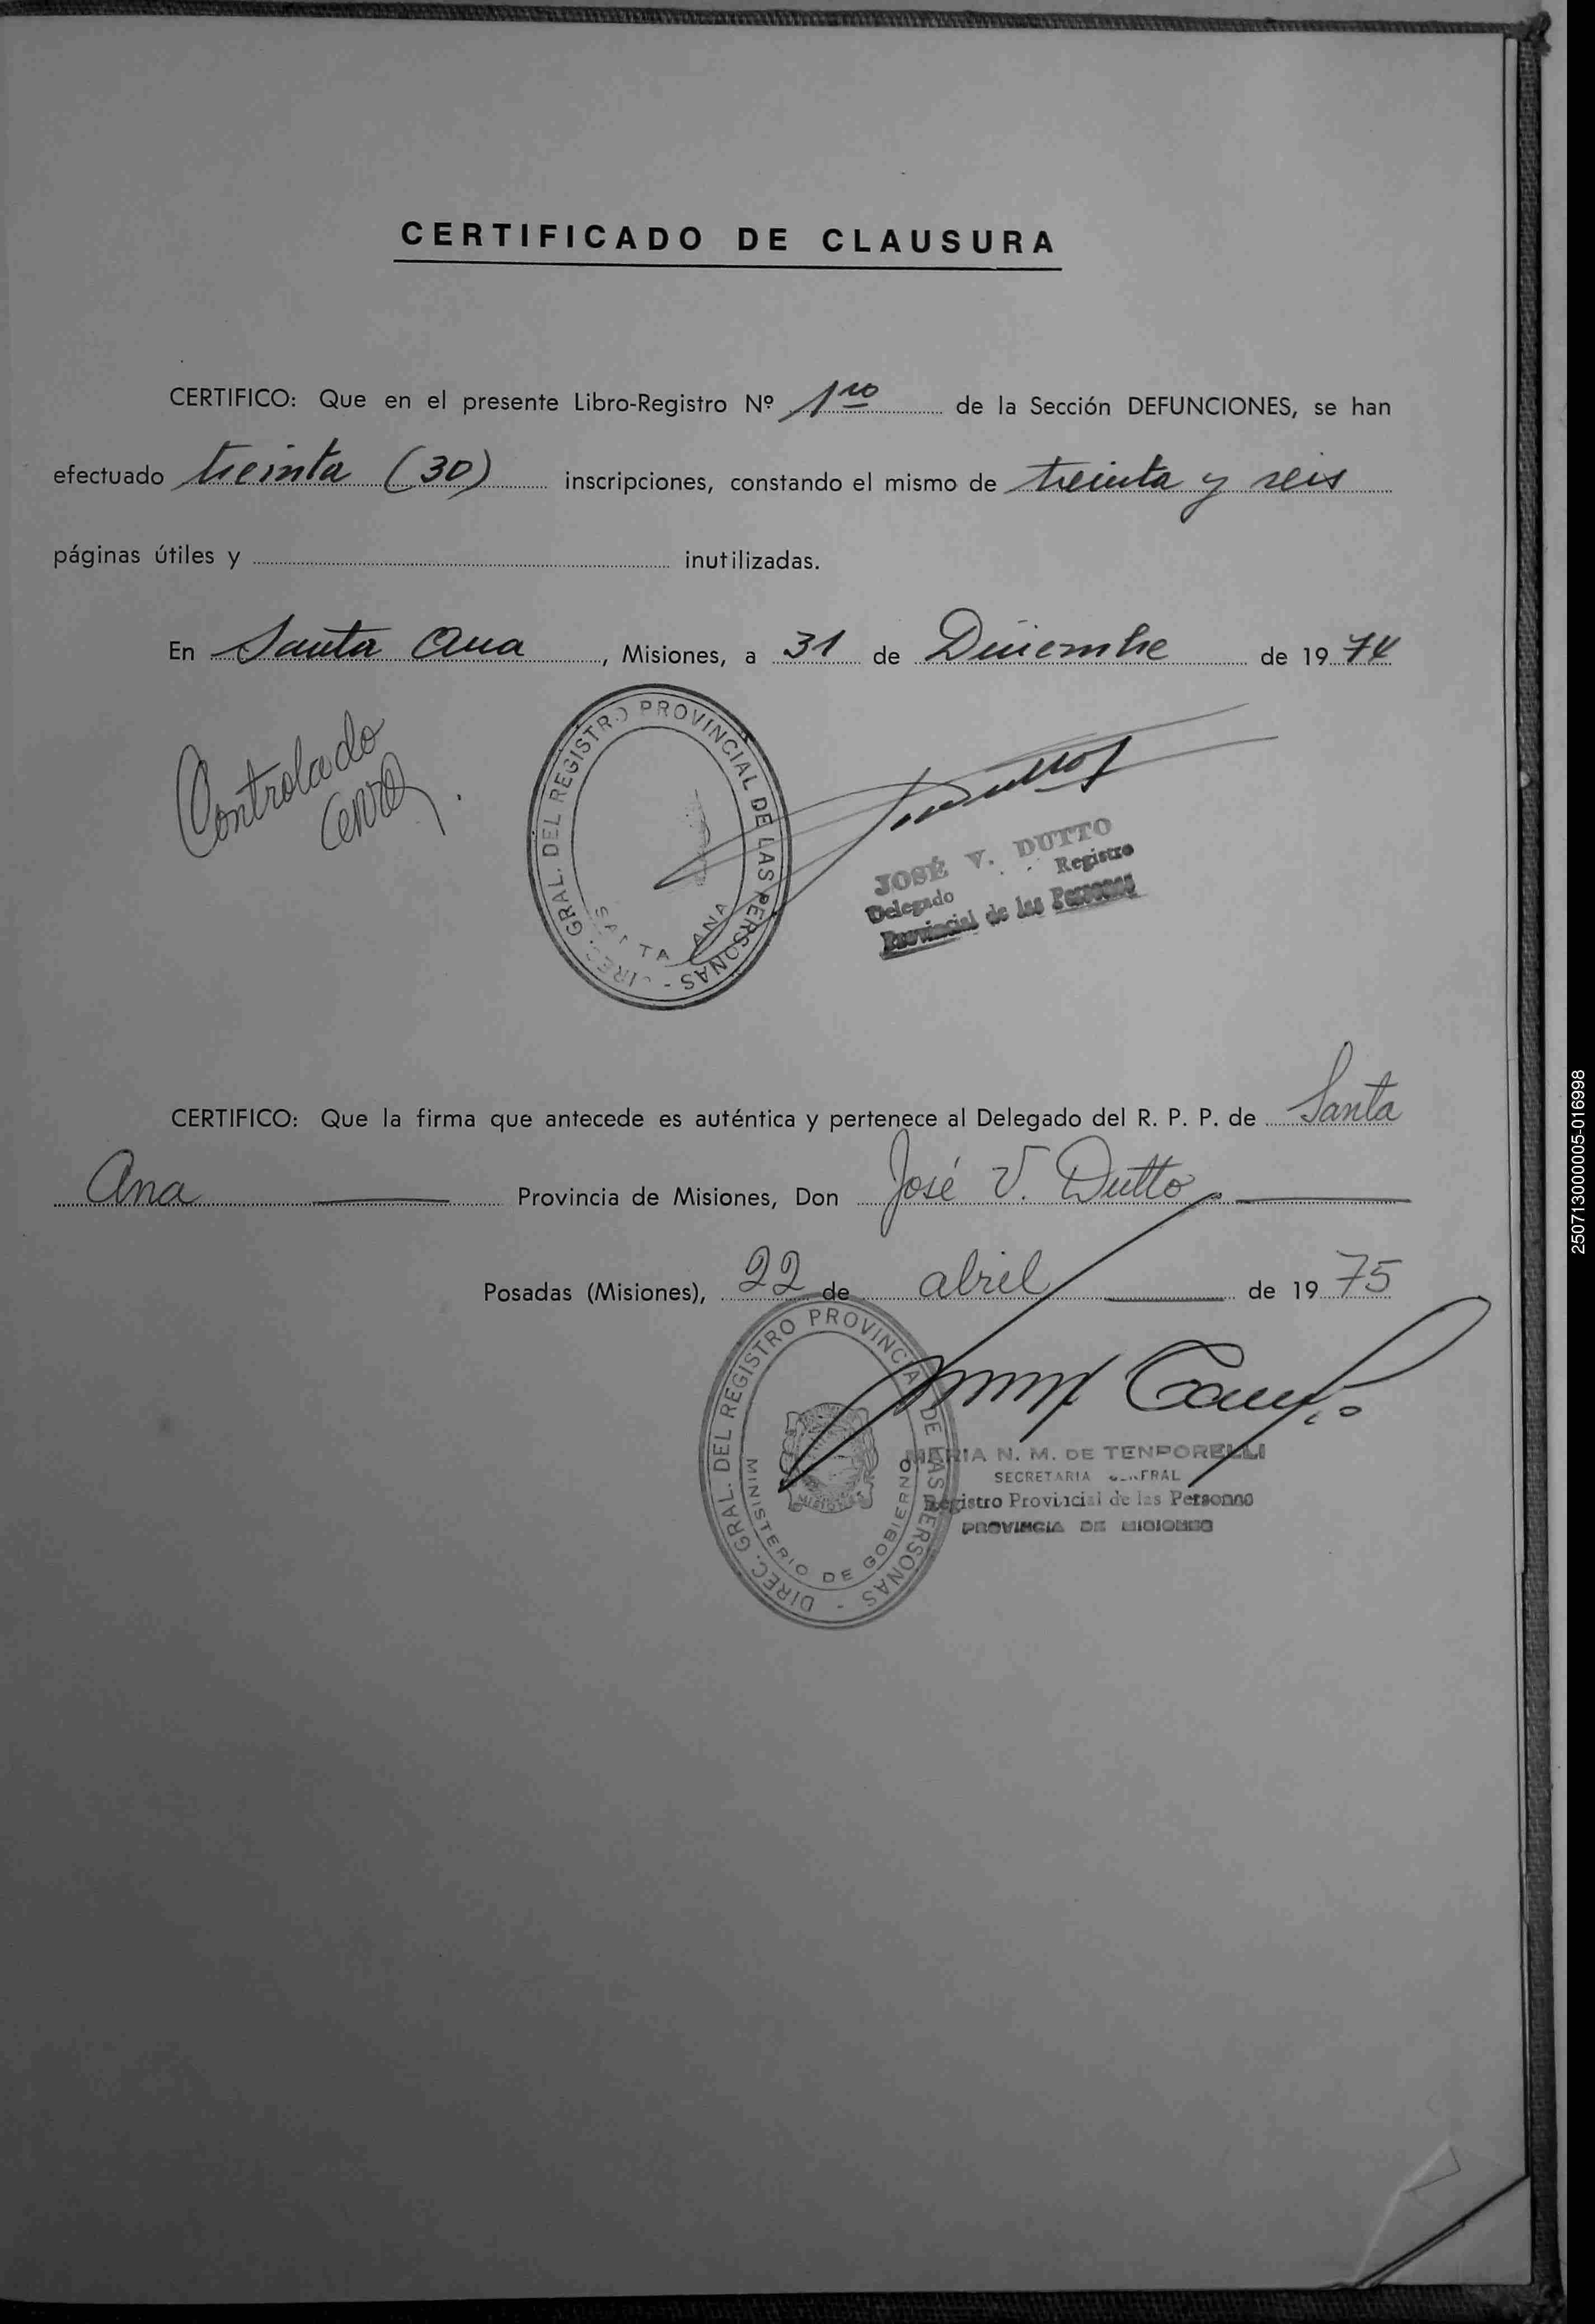 CERTIFICADO DE CLAUSURA
CERTIFICO: Que en el presente Libro-Registro Nº 1ro de la Sección DEFUNCIONES, se han
efectuado treinta (30) inscripciones, constando el mismo de treinta y seis
páginas útiles y inutilizadas.
En Santa Ana, Misiones, a 31 de Diciembre de 1974
Controlado
DIREC. GRAL. DEL REGISTRO PROVINCIAL DE LAS PERSONAS -
SANTA ANA
JOSÉ V. DUTTO
Delegado Registro
Provincial de las Personas
CERTIFICO: Que la firma que antecede es auténtica y pertenece al Delegado del R. P. P. de Santa
Ana Provincia de Misiones, Don José V. Dutto
Posadas (Misiones), 22 de abril de 1975
DIREC. GRAL. DEL REGISTRO PROVINCIAL DE LAS PERSONAS -
MINISTERIO DE GOBIERNO
MISIONES
MARIA N. M. DE TENPORELLI
SECRETARIA GENERAL
Registro Provincial de las Personas
PROVINCIA DE MISIONES
250713000005-016998